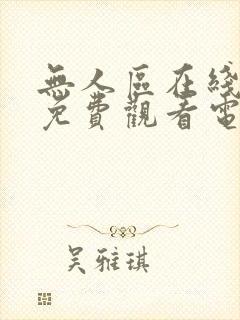 無人區在綫
免費觀看電
吴雅琪